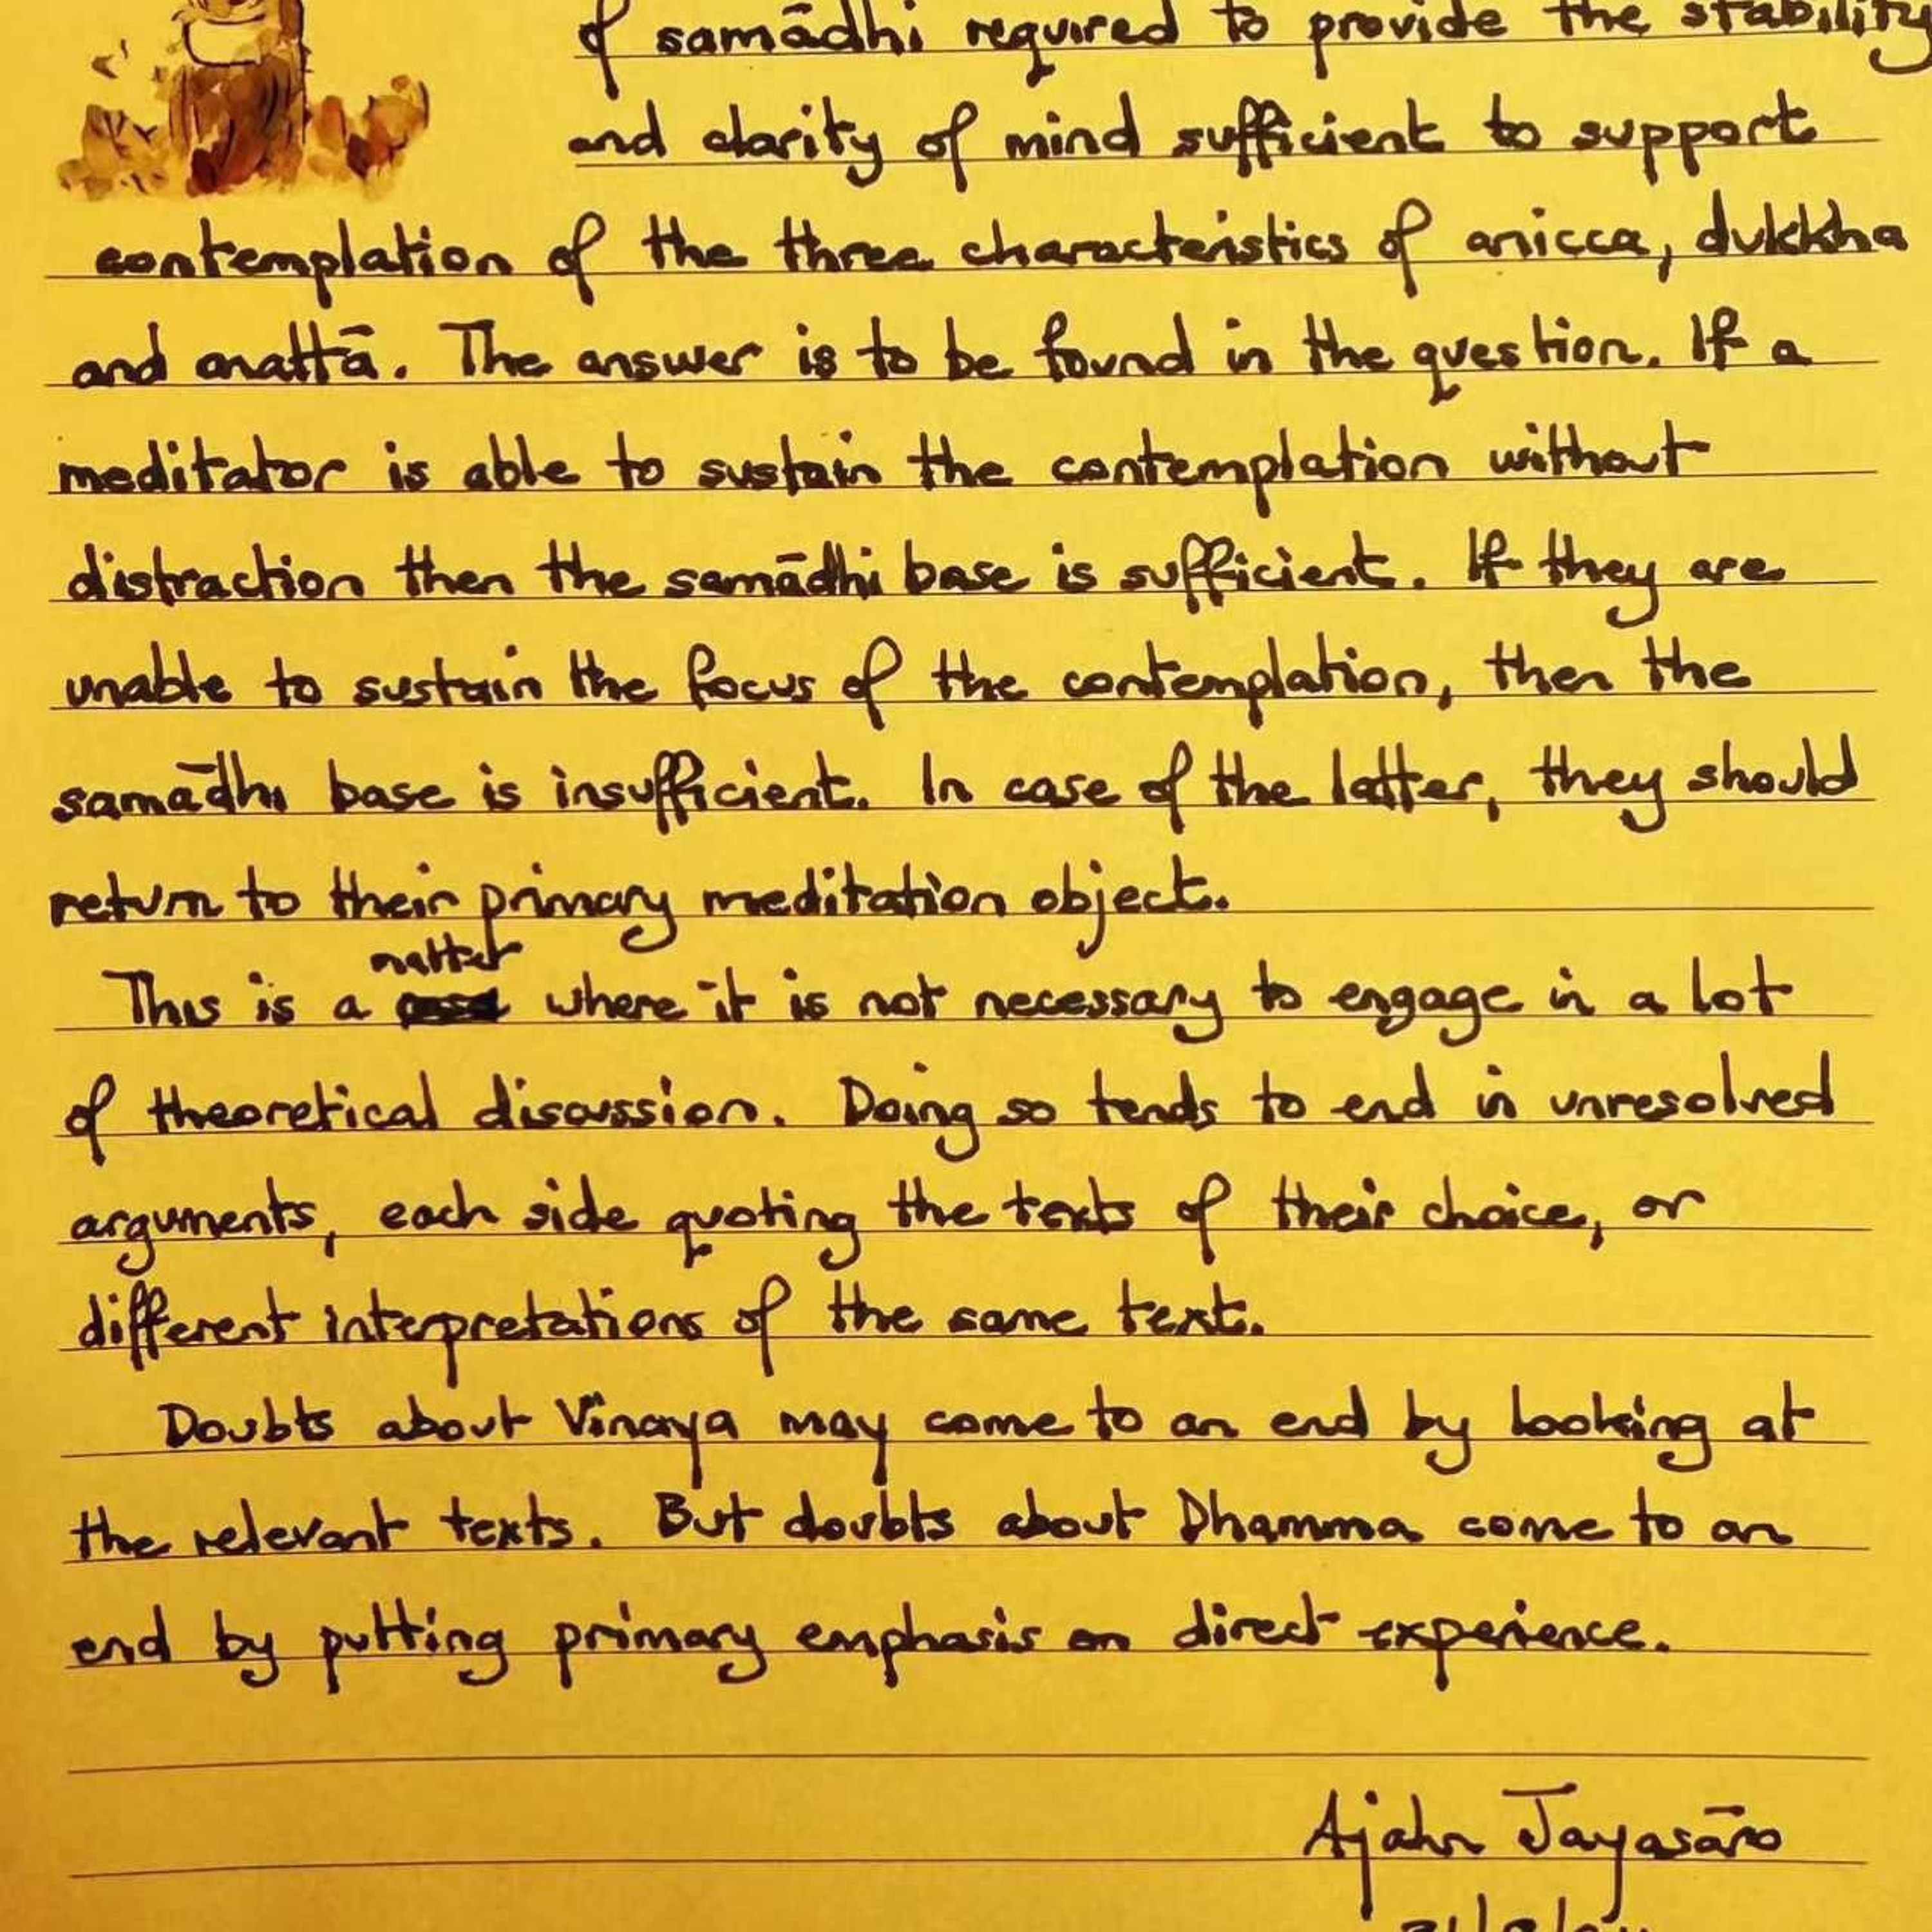 of samādhi required to provide the stability
and clarity of mind sufficient to support
contemplation of the three characteristics of anicca, dukkha
and anattā. The answer is to be found in the question. If a
meditator is able to sustain the contemplation without
distraction then the samādhi base is sufficient. If they are
unable to sustain the focus of the contemplation, then the
samādhi base is insufficient. In case of the latter, they should
return to their primary meditation object.
This is a matter where it is not necessary to engage in a lot
of theoretical discussion. Doing so tends to end in unresolved
arguments, each side quoting the texts of their choice, or
different interpretations of the same text.
Doubts about Vinaya may come to an end by looking at
the relevant texts. But doubts about Dhamma come to an
end by putting primary emphasis on direct experience.
Ajahn Jayasāro